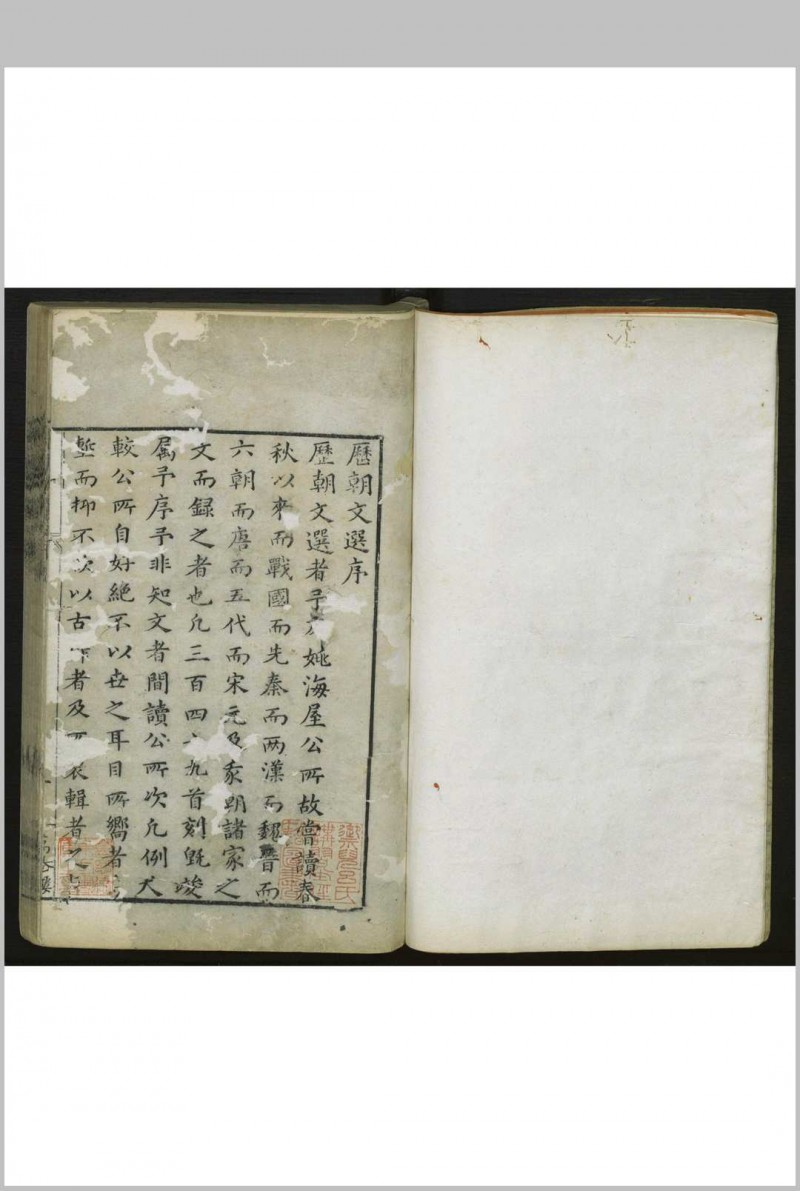 歷朝文選序
歷朝文選者予 姚海屋公所故嘗讀春
秋以來而戰國而先秦而兩漢而魏晉而
六朝而唐而五代而宋元及我明諸家之
文而錄之者也凡三百四 九首刻既竣
屬予序予非知文者間讀公所次凡例大
較公所自好絕不以世之耳目所嚮者
而抑不次以古 者及 輯者之